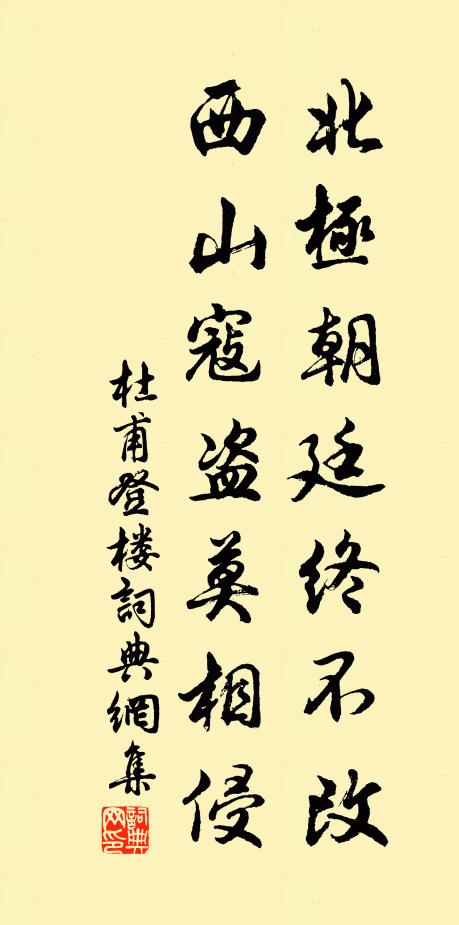 北極朝廷終不改
西山寇盗莫相侵
杜甫登楼詞典網集
詞典网印